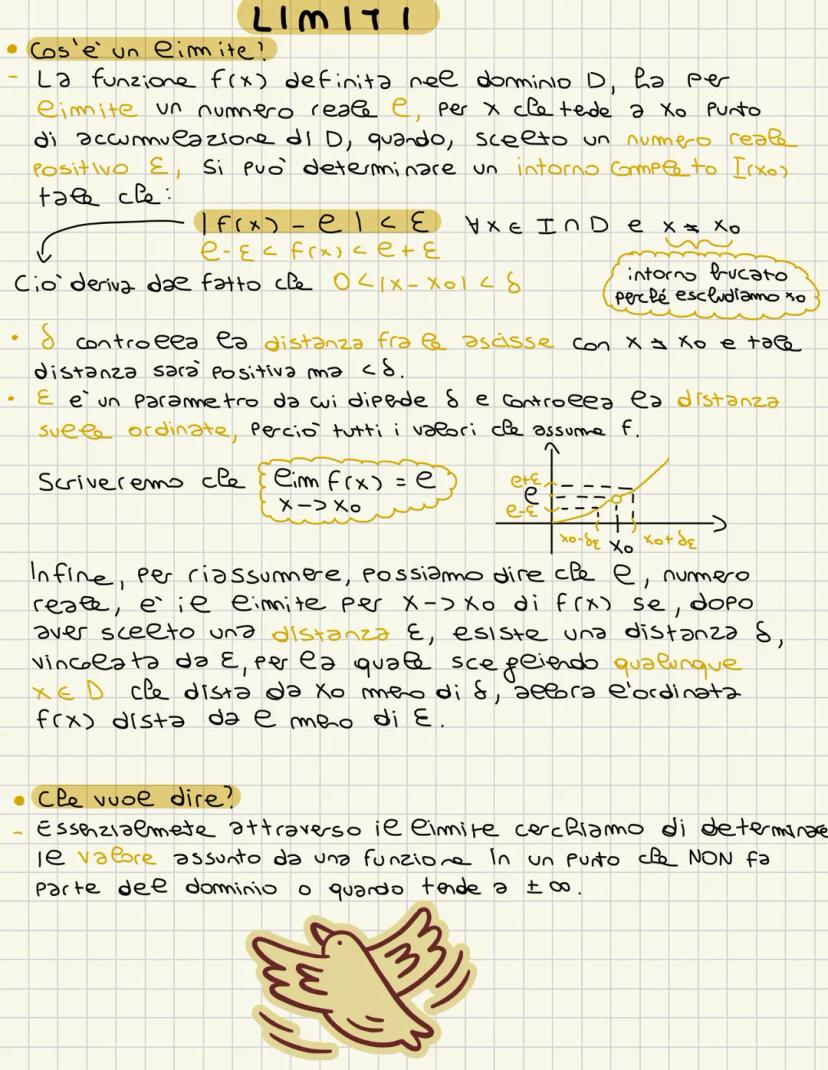 LIMITI
• Cos'è un limite?
- La funzione f(x) definita nel dominio D, ha per
limite un numero reale l, per x che tede a x₀ punto
di accumulazione di D, quando, scelto un numero reale
positivo ε, si può determinare un intorno completo I(x₀)
tale che:
|f(x) - l| < ε ∀x ∈ I∩D e x ≠ x₀
l-ε < f(x) < l+ε
intorno bucato
perché escludiamo x₀
Ciò deriva dal fatto che 0<|x-x₀| < δ
• δ controlla la distanza fra le ascisse con x ≠ x₀ e tale
distanza sarà positiva ma <δ.
• ε è un parametro da cui dipende δ e controlla la distanza
sulle ordinate, perciò tutti i valori che assume f.
Scriveremo che lim f(x) = l
x->x₀
l+ε
l
l-ε
x₀-δε x₀ x₀+δε
Infine, per riassumere, possiamo dire che l, numero
reale, è il limite per x->x₀ di f(x) se, dopo
aver scelto una distanza ε, esiste una distanza δ,
vincolata da ε, per la quale scegliendo qualunque
x ∈ D che dista da x₀ meno di δ, allora l'ordinata
f(x) dista da l meno di ε.
• Che vuol dire?
- Essenzialmete attraverso il limite cerchiamo di determinare
il valore assunto da una funzione in un punto che NON fa
parte del dominio o quando tende a ±∞.